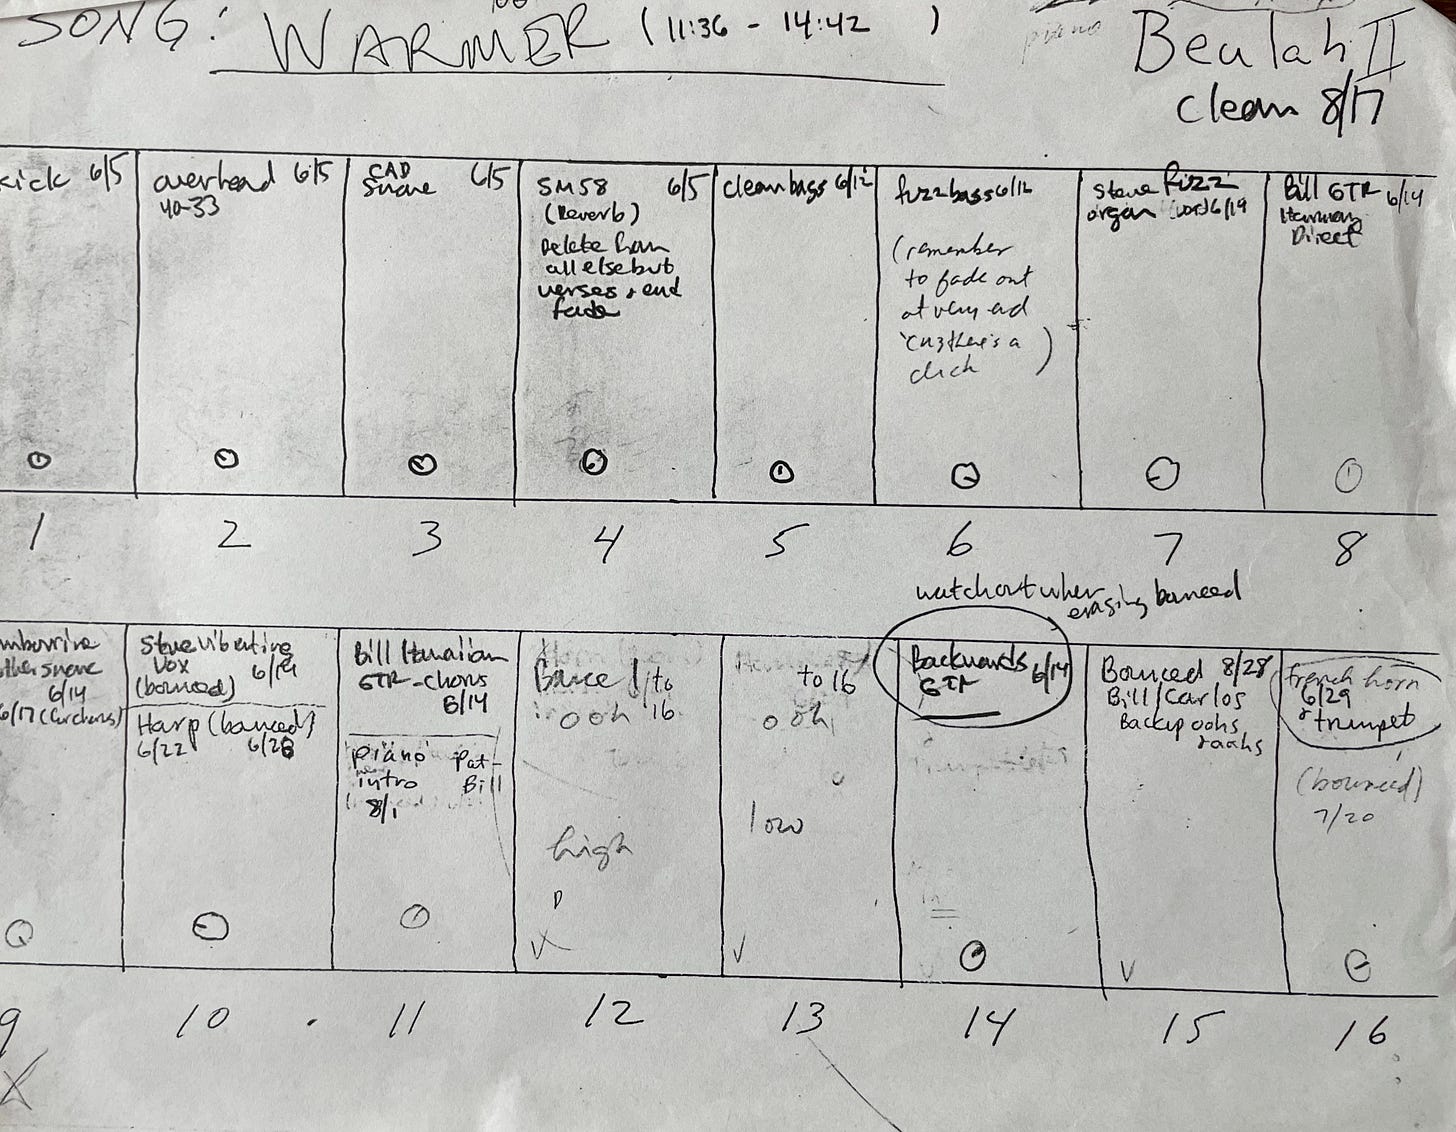 SONG: WARMER (11:36 - 14:42)
piano
Beulah II
clean 8/17
kick 6/5
overhead 6/5
40-33
CAD 6/5
Snare
SM58 6/5
(Reverb)
Delete from
all else but
verses + end
fade
clean bass 6/12
fuzz bass 6/12
(remember
to fade out
at very end
'cuz there's a
click)
Steve fuzz
organ (vox) 6/19
Bill GTR 6/14
Harmony
Direct
1 2 3 4 5 6 7 8
watch out when
erasing bounced
mbourine
ther snare
6/14
6/17 (for chorus)
Steve Vibrating
Vox 6/14
(bounced)
Harp (bounced)
6/22 6/28
Bill Hawaiian
GTR - Chorus
6/14
piano Pat-
intro Bill
8/1
Bounced to
ooh 16
high
to 16
ooh
low
Backwards 6/14
GTR
Bounced 8/28
Bill/Carlos
Backup oohs
+ aahs
french horn
6/29
& trumpet
(bounced)
7/20
9 10 11 12 13 14 15 16
X